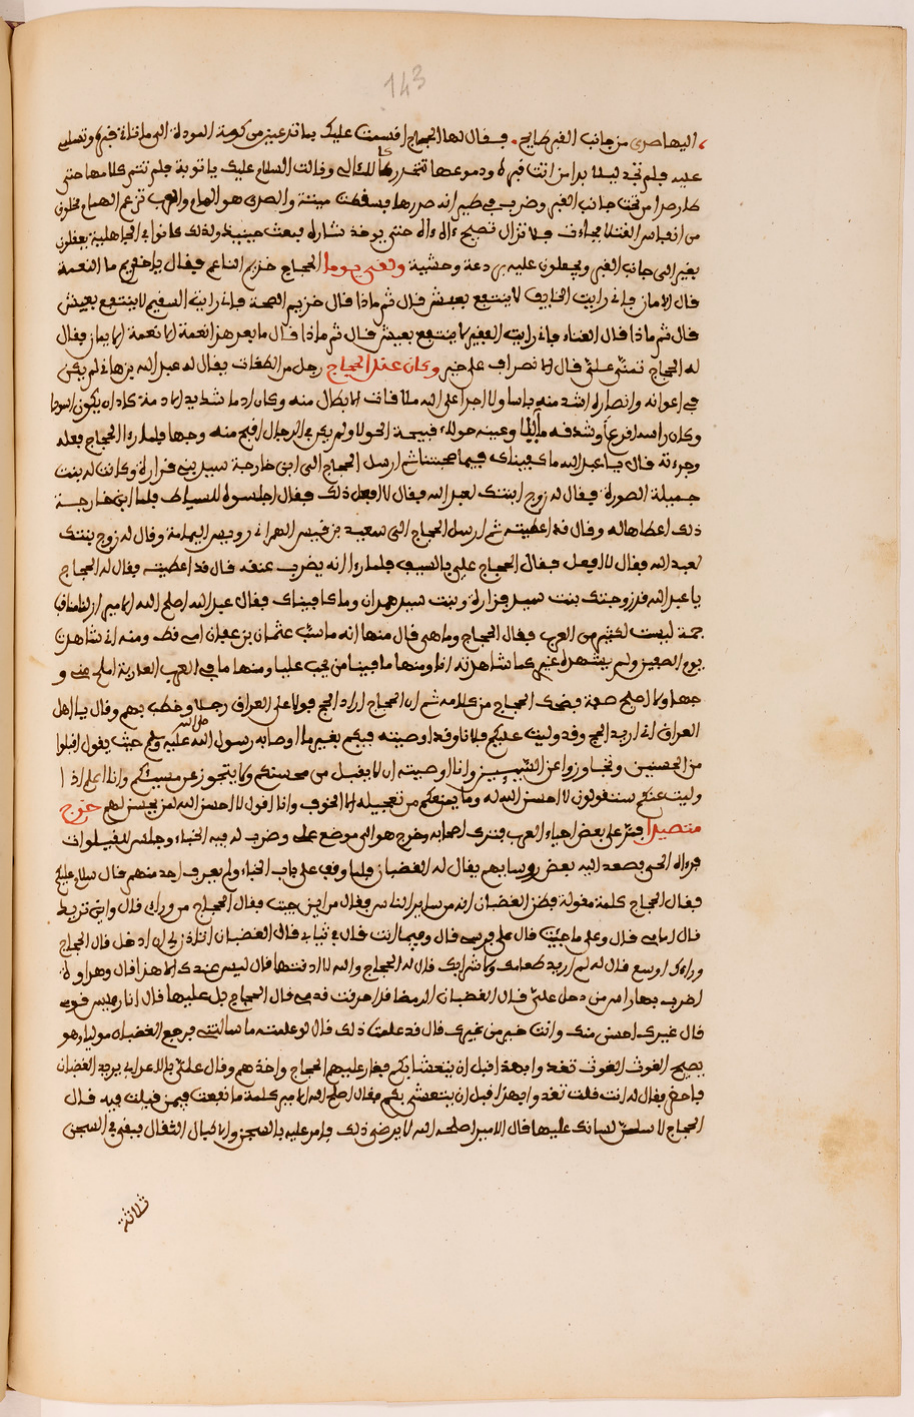 143
اليها صدى من جانب القبر صايح. فقال لها الحجاج اقسمت عليك بما تدعيه من كرمة المودة الى ما قلة قبره وتسلمى
عليه فلم تجد بدا من اتت قبره ودموعها تتحدر كاللئالى وقالت السلام عليك يا توبة فلم تتم كلامها حتى
طار صدا من تحت جانب القبر وضرب في طيرانه صدرها فسقطت ميتة والصدى هو الهام والعرب تزعم الهام مخلوق
من انفاس القتلا فلا تزال تصيح حتى يوخذ بثاره فبعث حينيذ ولذلك كانوا في الجاهلية يعقلون
بعير الى جانب القبر ويجعلون عليه بردعة وحشية ولقى يوما الحجاج خزيم الناعم فقال يا خزيم ما النعمة
قال الامان فانى رايت الخايف لا ينتفع بعيش قال ثم ماذا قال خزيم الصحة فانى رايت السقيم لا ينتفع بعيش
قال ثم ماذا قال الغناء فانى رايت الفقير لا ينتفع بعيش قال ثم ماذا قال ما بعد هذا نعمة الا نعمة الايمان فقال
له الحجاج تمنى على قال الانصراف على خير وكان عند الحجاج رجل من الطغات يقال له عبد الله بن هانى لم يكن
في اعوانه وانصاره اشد منه باسا ولا اجرا على الله ملا فات الابطال منه وكان ادما شديد الادمة كاد ان يكون اسودا
وكان راسه اقرعا وشدقه مايلا وعينه حولاء قبيحة الحولا ولم ير في الرجال اقبح منه وجها فلما راا الحجاج فعله
وجرءته قال يا عبد الله ما كافيناك فيما صحبتنا ثم ارسل الحجاج الى ابن خارجة سيد بنى فزارة وكانت له بنت
جميلة الصورة فقال له زوج ابنتك لعبد الله فقال لا افعل ذلك فقال اجلسوه للسياط فلما راا ابن خارجة
ذلك اعطاها له وقال قد اعطيته ثم ارسل الحجاج الى سعيد بن قيس الهمدانى رويس اليمامة وقال له زوج بنتك
لعبد الله فقال لا افعل فقال الحجاج على بالسيف فلما راا انه يضرب عنقه قال قد اعطيته فقال له الحجاج
يا عبد الله قد زوجتك بنت سيد فزارة وبنت سيد همدان وما كافيناك فقال عبد الله اصلح الله الامير ان لنا مناقبا
جمة ليست لكثير من العرب فقال الحجاج وما هى قال منها انه ما سب عثمان بن عفان امى قط ومنه انى شاهدت
يوم الصفين ولم يشهده غير كما شاهدته انا ومنها ما فينا من يحب عليا ومنها ما في العرب العاربة املح منى و
جها ولا اصلح صورة فضحك الحجاج من كلامه ثم ان الحجاج اراد الحج فولا على العراق رجلا وخطب بهم وقال يا اهل
العراق انى اريد الحج وقد وليت عليكم فلانا وقد اوصيته فيكم بغير ما اوصا به رسول الله صلى الله عليه وسلم حيث يقول اقبلوا
من المحسنين وتجاوزوا عن المسيين وانا اوصيته ان لا يقبل من محسنكم ولا يتجوز عن مسيئكم وانا اعلم اذا
وليت عنكم ستقولون لا احسن الله له وما يمنعكم من تعجيله الا الخوف وانا اقول لا احسن الله لمن يحسن لهم خرج
متصيدا فمر على بعض احياء العرب فترك اصحابه وخرج هو الى موضع على وضرب له فيه الخباء وجلس للقيلولة
فرءاه الحى فصعد اليه بعض روسايهم يقال له الغضبان فلما وقف على باب الخباء ولم يعرف احد منهم قال سلام عليكم
فقال الحجاج كلمة مقولة فظن الغضبان انه من ساير الناس فقال من اين جيت فقال الحجاج من وراى قال واين تريد
قال امامى قال وعلى ما جيت قال على فرسى قال وفيما انت قال في ثيابى قال الغضبان اتاذن لى ان ادخل قال الحجاج
وراءك اوسع قال له لم اريد طعامك ولا شرابك قال له الحجاج والله لا اذنتها قال ليس عندك الا هذا قال وهراوة
اضرب بها راس من دخل على قال الغضبان الرمضا قد احرقت قدمى قال الحجاج بل عليها قال انا رييس قومى
قال غيرى احسن منك وانت خير من غيرك قال قد علمت ذلك قال لو علمته ما سالتنى فرجع الغضبان موليا وهو
يصيح الغوث الغوث تغدوا بهذا قبل ان يتعشا بكم فغار عليهم الحجاج واخذهم وقال على بالاعرابى يريد الغضبان
فاحضر فقال له انت قلت تغدوا بهذا قبل ان يتعشى بكم فقال اصلح الله الامير كلمة ما نفعت فيمن قيلت فيه قال
الحجاج لا سلمن لسانك عليها قال الامير اصلحه الله لا يرضى ذلك فامر عليه بالسجن والاكبال الثقال فبقى في السجن
ثلاثة